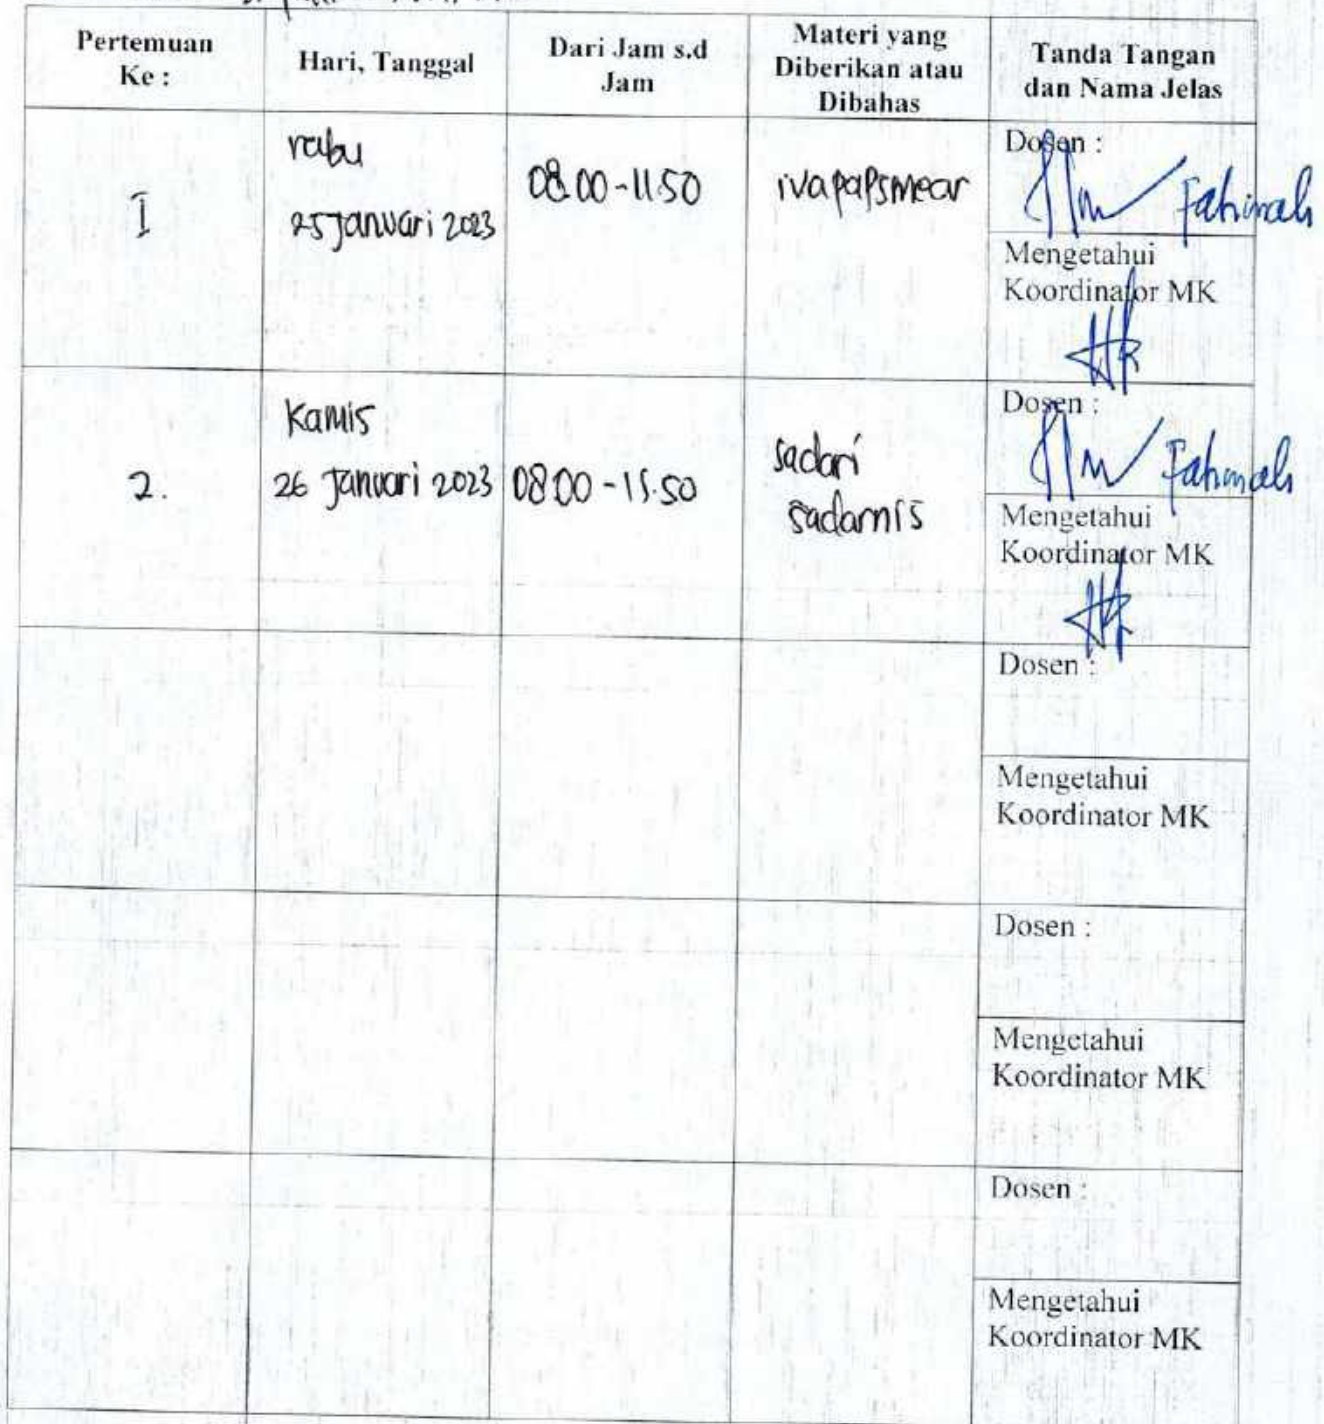 Pertemuan
Ke :
Hari, Tanggal
Dari Jam s.d
Jam
Materi yang
Diberikan atau
Dibahas
Tanda Tangan
dan Nama Jelas
I
rabu
25 Januari 2023
08.00 - 11.50
iva papsmear
Dosen :
Fatimah
Mengetahui
Koordinator MK
2.
Kamis
26 Januari 2023
08.00 - 11.50
sadari
sadarnis
Dosen :
Fatimah
Mengetahui
Koordinator MK
Dosen :
Mengetahui
Koordinator MK
Dosen :
Mengetahui
Koordinator MK
Dosen :
Mengetahui
Koordinator MK